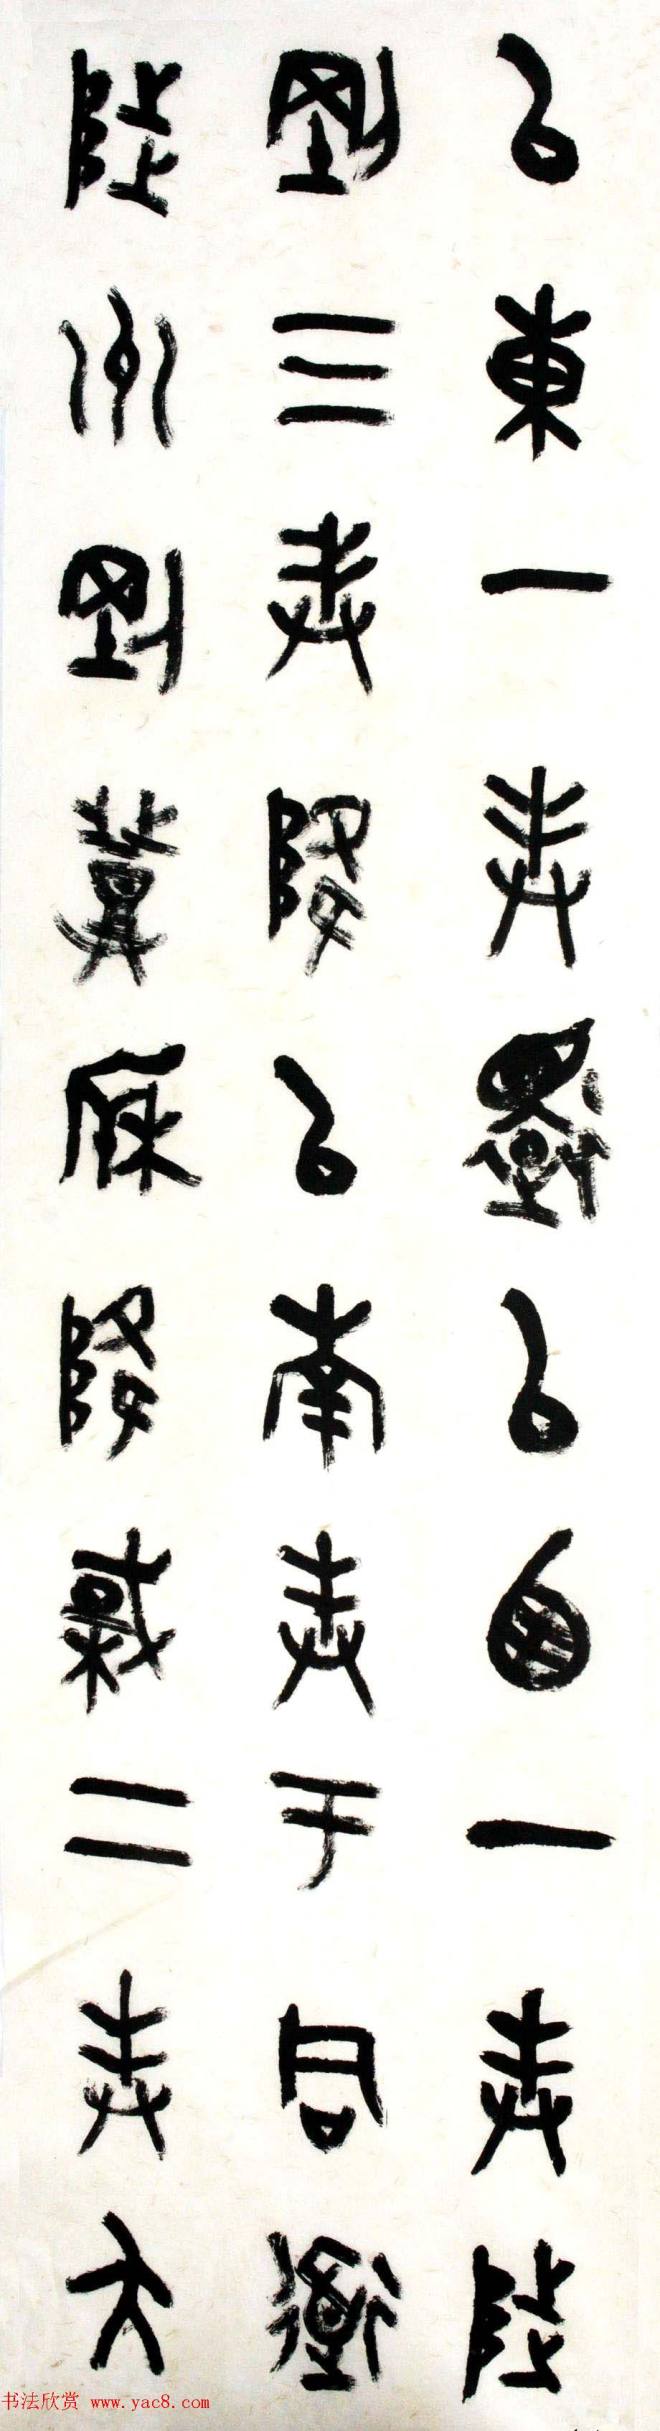 以東一奉還以西一奉陟
剛三奉降以南奉于同道
陟州剛登降棫二奉夨
书法欣赏 www.yac8.com